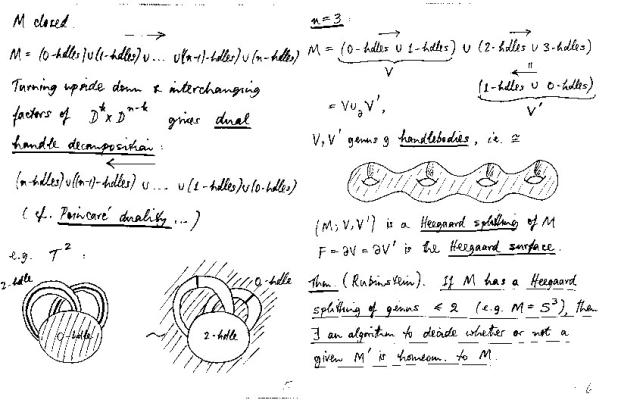 M closed.
M = (0-hdles) ∪ (1-hdles) ∪ ... ∪ ((n-1)-hdles) ∪ (n-hdles)
Turning upside down & interchanging
factors of D^k × D^{n-k} gives dual
handle decomposition:
(n-hdles) ∪ ((n-1)-hdles) ∪ ... ∪ (1-hdles) ∪ (0-hdles)
(cf. Poincaré duality ...)
e.g. T² :
2-hdle
0-hdle
0-hdle
2-hdle
5
n = 3 :
M = (0-hdles ∪ 1-hdles) ∪ (2-hdles ∪ 3-hdles)
V
=
(1-hdles ∪ 0-hdles)
V'
= V ∪_∂ V',
V, V' genus g handlebodies, i.e. ≅
(M; V, V') is a Heegaard splitting of M
F = ∂V = ∂V' is the Heegaard surface.
Thm (Rubinstein). If M has a Heegaard
splitting of genus ≤ 2 (e.g. M = S³), then
∃ an algorithm to decide whether or not a
given M' is homeom. to M.
6